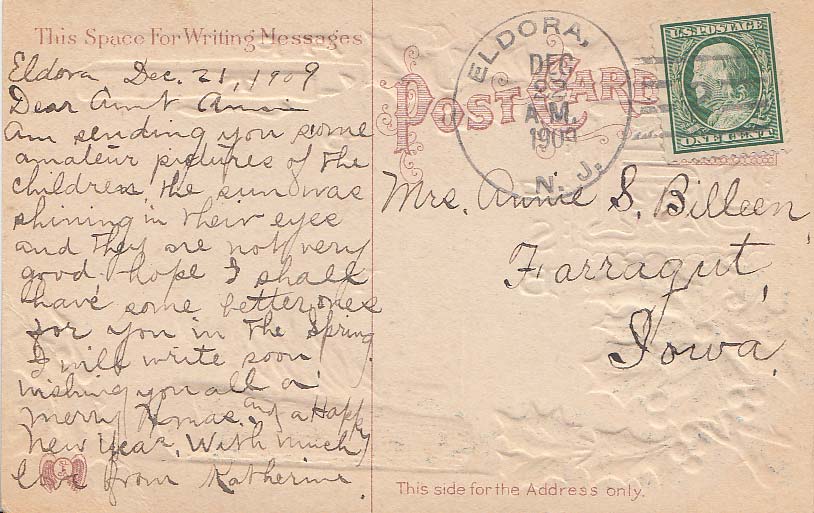 This Space For Writing Messages
Eldora Dec. 21, 1909
Dear Aunt Annie
Am sending you some
amateur pictures of the
children the sun was
shining in their eyes
and they are not very
good. hope I shall
have some better ones
for you in the Spring.
I will write soon
wishing you all a
merry Xmas. and a Happy
New Year. With much
love from Katherine.
POST CARD
ELDORA,
DEC
22
A.M.
1909
N. J.
U.S. POSTAGE
ONE CENT
Mrs. Annie S. Billeen,
Farragut,
Iowa.
This side for the Address only.